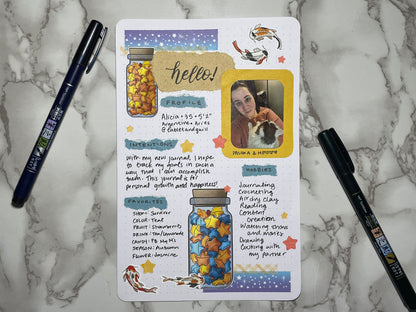 hello!
PROFILE
Alicia • 35 • 5'2"
Argentine • Aries
INTENTIONS
With my new journal, I hope
to track my habits in such a
way that I can accomplish
them. This journal is for
personal growth and happiness!
FAVORITES
SHOW: Survivor
COLOR: Teal
FRUIT: Strawberries
DRINK: Tea/Lemonade
CANDY: PB M&Ms
SEASON: Autumn
FLOWER: Jasmine
HOBBIES
Journaling
Crocheting
Air dry clay
Reading
Content
Creation
Watching shows
and movies
Drawing
Cuddling with
my partner